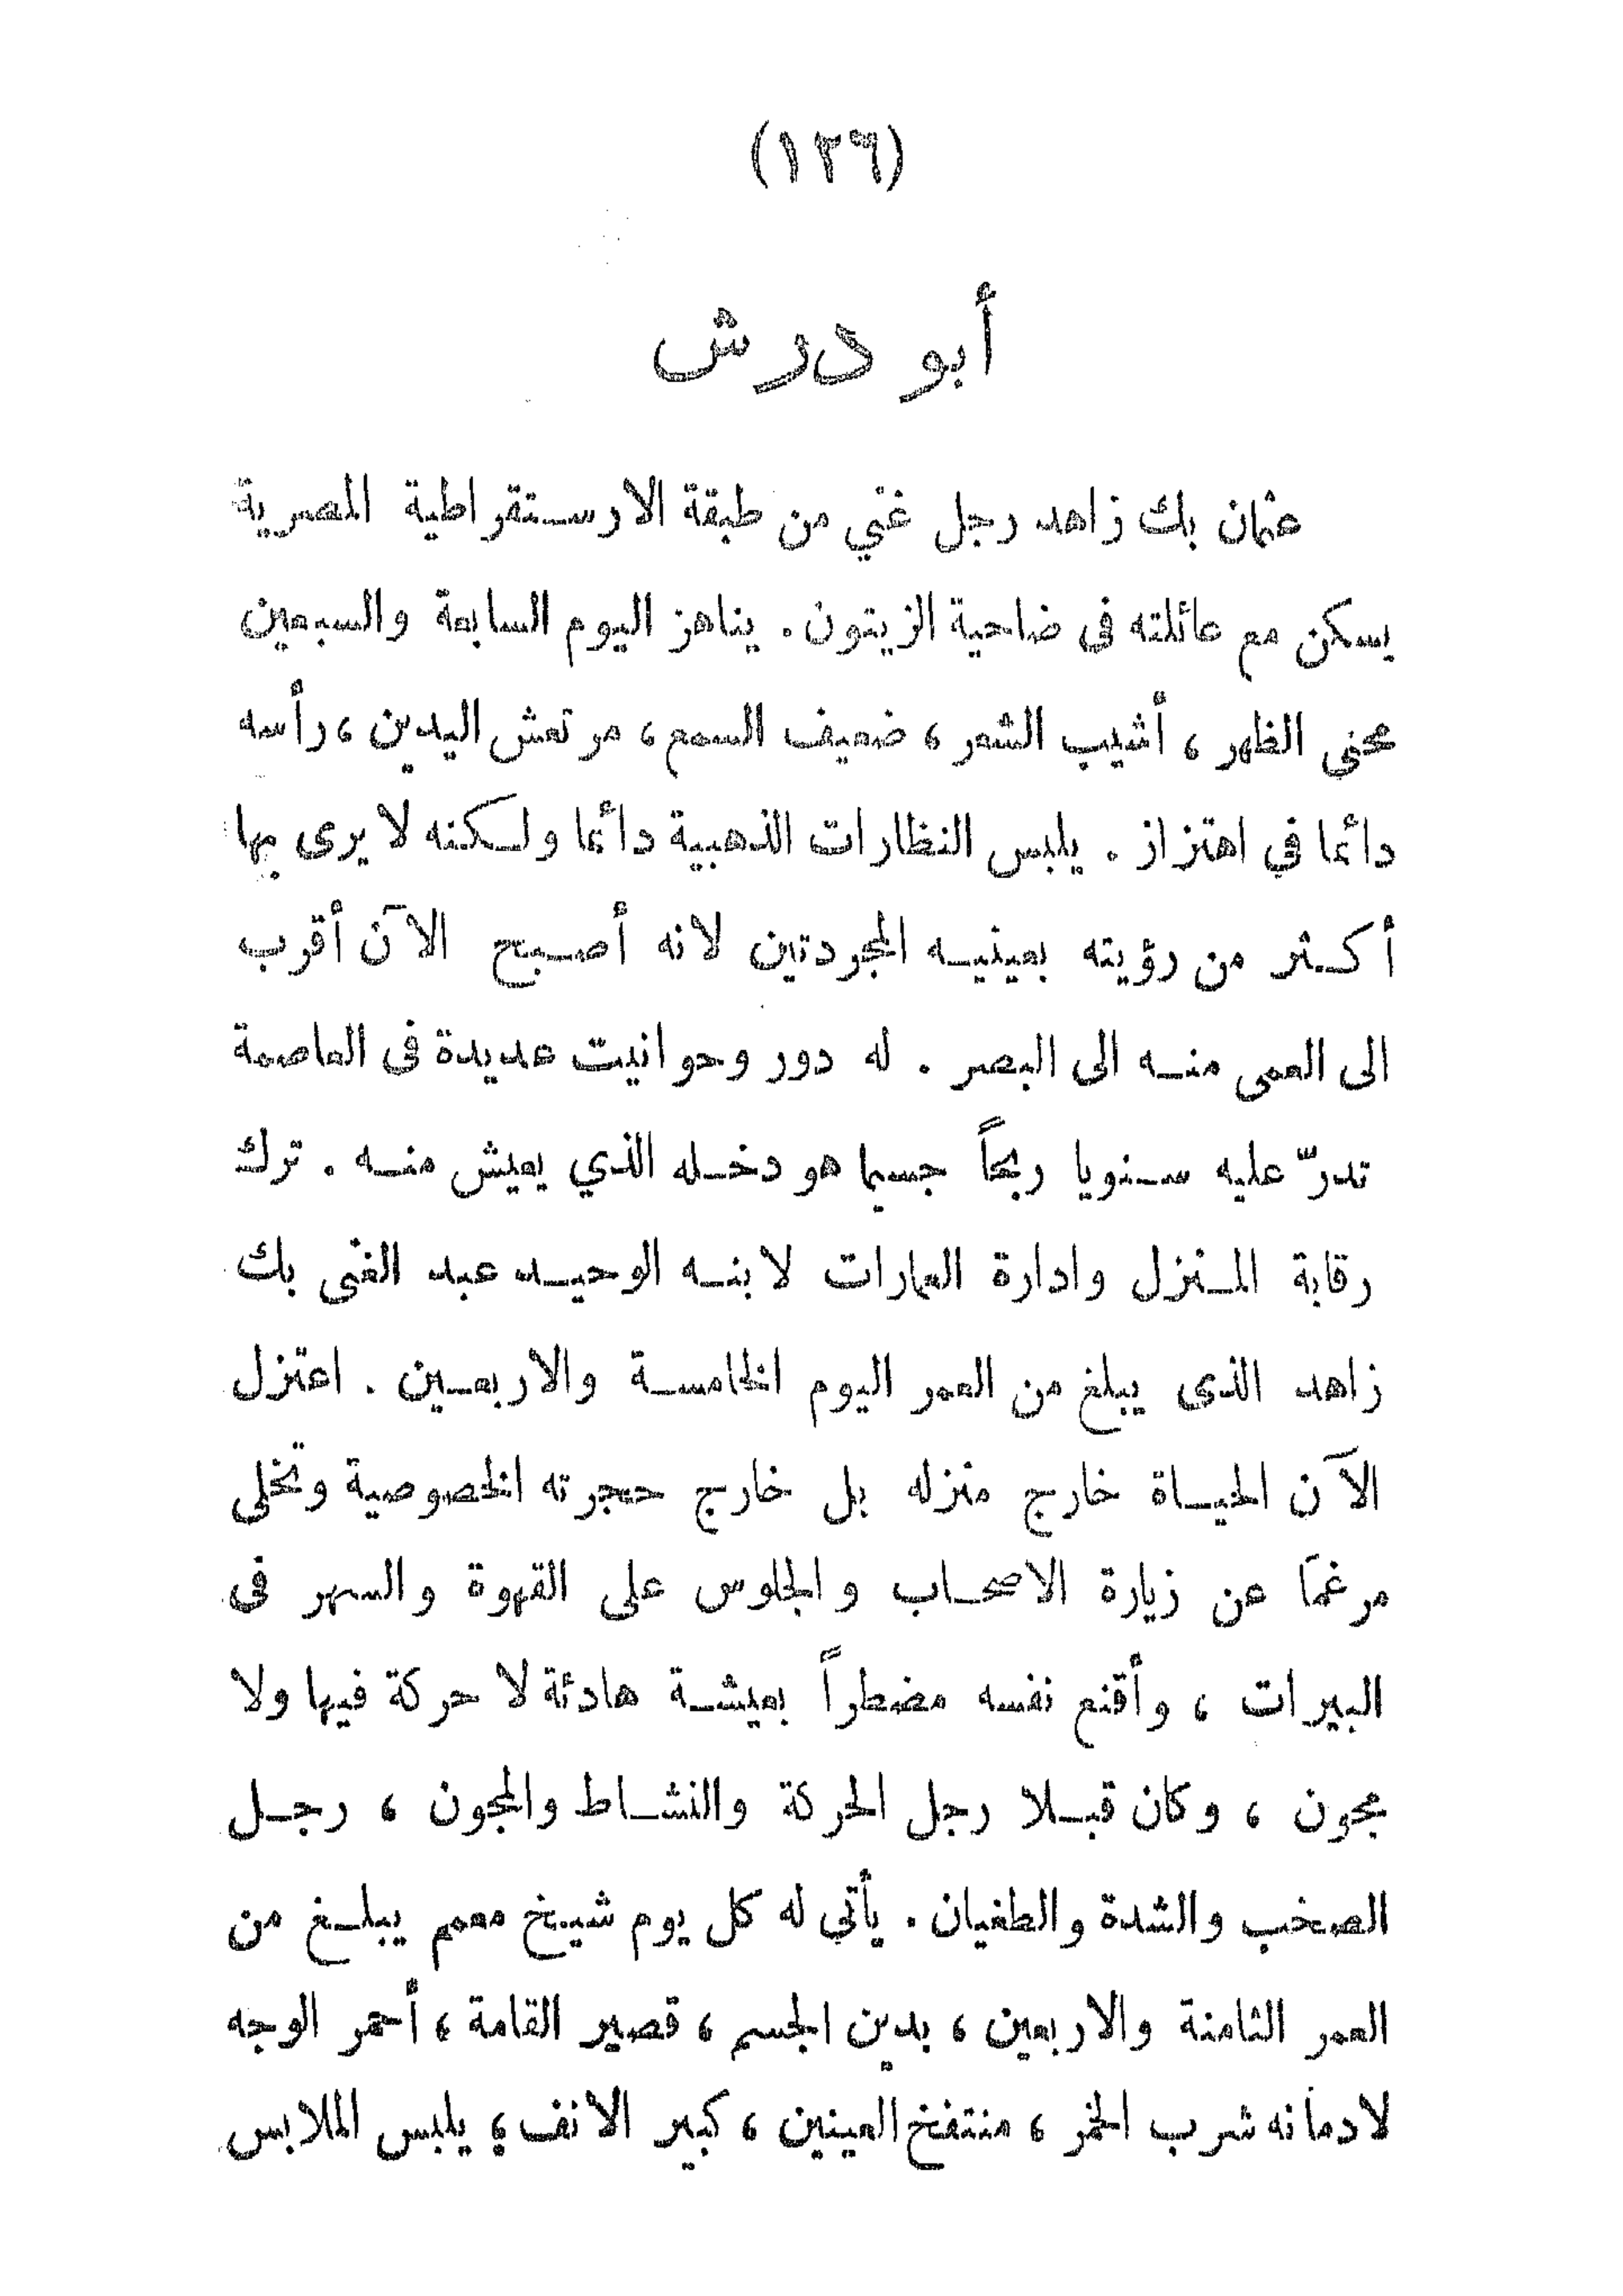 (١٣٦)
أبو درش
عثمان بك زاهد رجل غني من طبقة الارستقراطية المصرية
يسكن مع عائلته فى ضاحية الزيتون. يناهز اليوم السابعة والسبعين
محنى الظهر ، أشيب الشعر ، ضعيف السمع ، مرتعش اليدين ، رأسه
دائما في اهتزاز . يلبس النظارات الذهبية دائما ولكنه لا يرى بها
أكثر من رؤيته بعينيه المجردتين لانه أصبح الآن أقرب
الى العمى منه الى البصر . له دور وحوانيت عديدة فى العاصمة
تدرّ عليه سنويا ربحاً جسيما هو دخله الذي يعيش منه . ترك
رقابة المنزل وادارة العمارات لابنه الوحيد عبد الغنى بك
زاهد الذى يبلغ من العمر اليوم الخامسة والاربعين . اعتزل
الآن الحياة خارج منزله بل خارج حجرته الخصوصية وتخلى
مرغما عن زيارة الاصحاب والجلوس على القهوة والسهر فى
البيرات ، وأقنع نفسه مضطراً بعيشة هادئة لا حركة فيها ولا
مجون ، وكان قبلا رجل الحركة والنشاط والمجون ، رجل
الصخب والشدة والطغيان . يأتي له كل يوم شيخ معمم يبلغ من
العمر الثامنة والاربعين ، بدين الجسم ، قصير القامة ، أحمر الوجه
لادمانه شرب الخمر ، منتفخ العينين ، كبير الانف ؛ يلبس الملابس